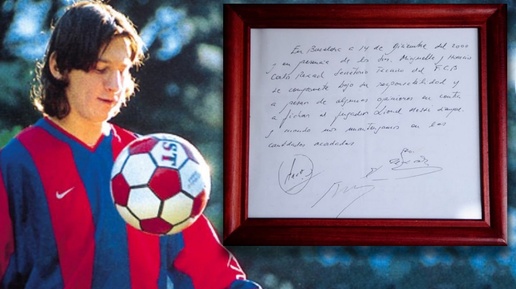 En Barcelona a 14 de diciembre del 2000
y en presencia de los Srs. Minguella y Horacio
Carles Rexach Secretario Técnico del F.C.B
se compromete bajo su responsabilidad y
a pesar de algunas opiniones en contra
a fichar al jugador Lionel Messi siempre
y cuando nos mantengamos en las
cantidades acordadas